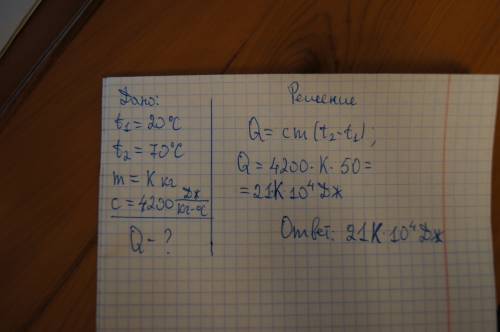 Дано:
t₁ = 20°C
t₂ = 70°C
m = К кг
c = 4200 Дж/кг·°C
Q - ?
Решение
Q = cm(t₂-t₁);
Q = 4200·К·50=
=21·К 10⁴ Дж
Ответ: 21К·10⁴ Дж